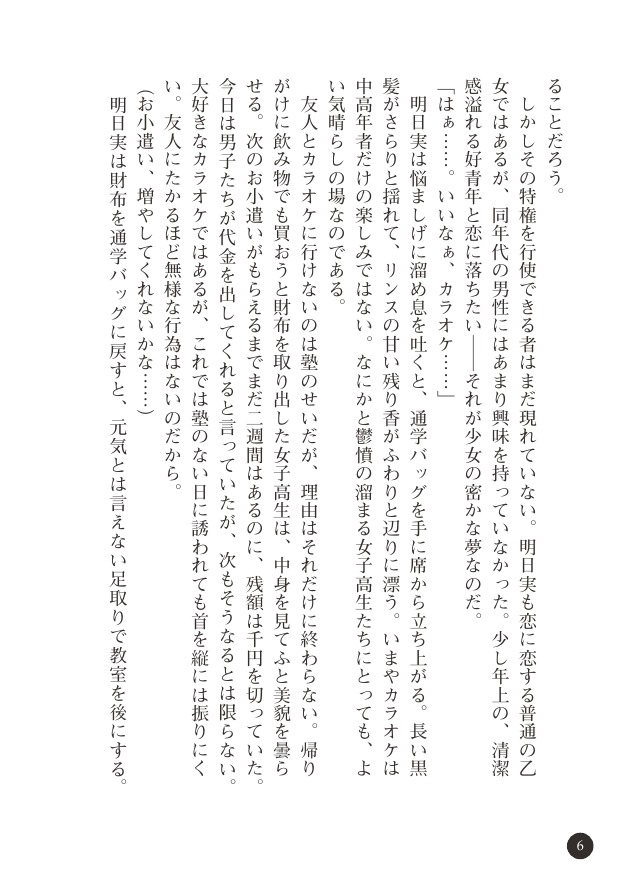 ることだろう。
　しかしその特権を行使できる者はまだ現れていない。明日実も恋に恋する普通の乙
女ではあるが、同年代の男性にはあまり興味を持っていなかった。少し年上の、清潔
感溢れる好青年と恋に落ちたい――それが少女の密かな夢なのだ。
「はぁ……。いいなぁ、カラオケ……」
　明日実は悩ましげに溜め息を吐くと、通学バッグを手に席から立ち上がる。長い黒
髪がさらりと揺れて、リンスの甘い残り香がふわりと辺りに漂う。いまやカラオケは
中高年者だけの楽しみではない。なにかと鬱憤の溜まる女子高生たちにとっても、よ
い気晴らしの場なのである。
　友人とカラオケに行けないのは塾のせいだが、理由はそれだけに終わらない。帰り
がけに飲み物でも買おうと財布を取り出した女子高生は、中身を見てふと美貌を曇ら
せる。次のお小遣いがもらえるまでまだ二週間はあるのに、残額は千円を切っていた。
今日は男子たちが代金を出してくれると言っていたが、次もそうなるとは限らない。
大好きなカラオケではあるが、これでは塾のない日に誘われても首を縦には振りにく
い。友人にたかるほど無様な行為はないのだから。
（お小遣い、増やしてくれないかな……）
　明日実は財布を通学バッグに戻すと、元気とは言えない足取りで教室を後にする。
6